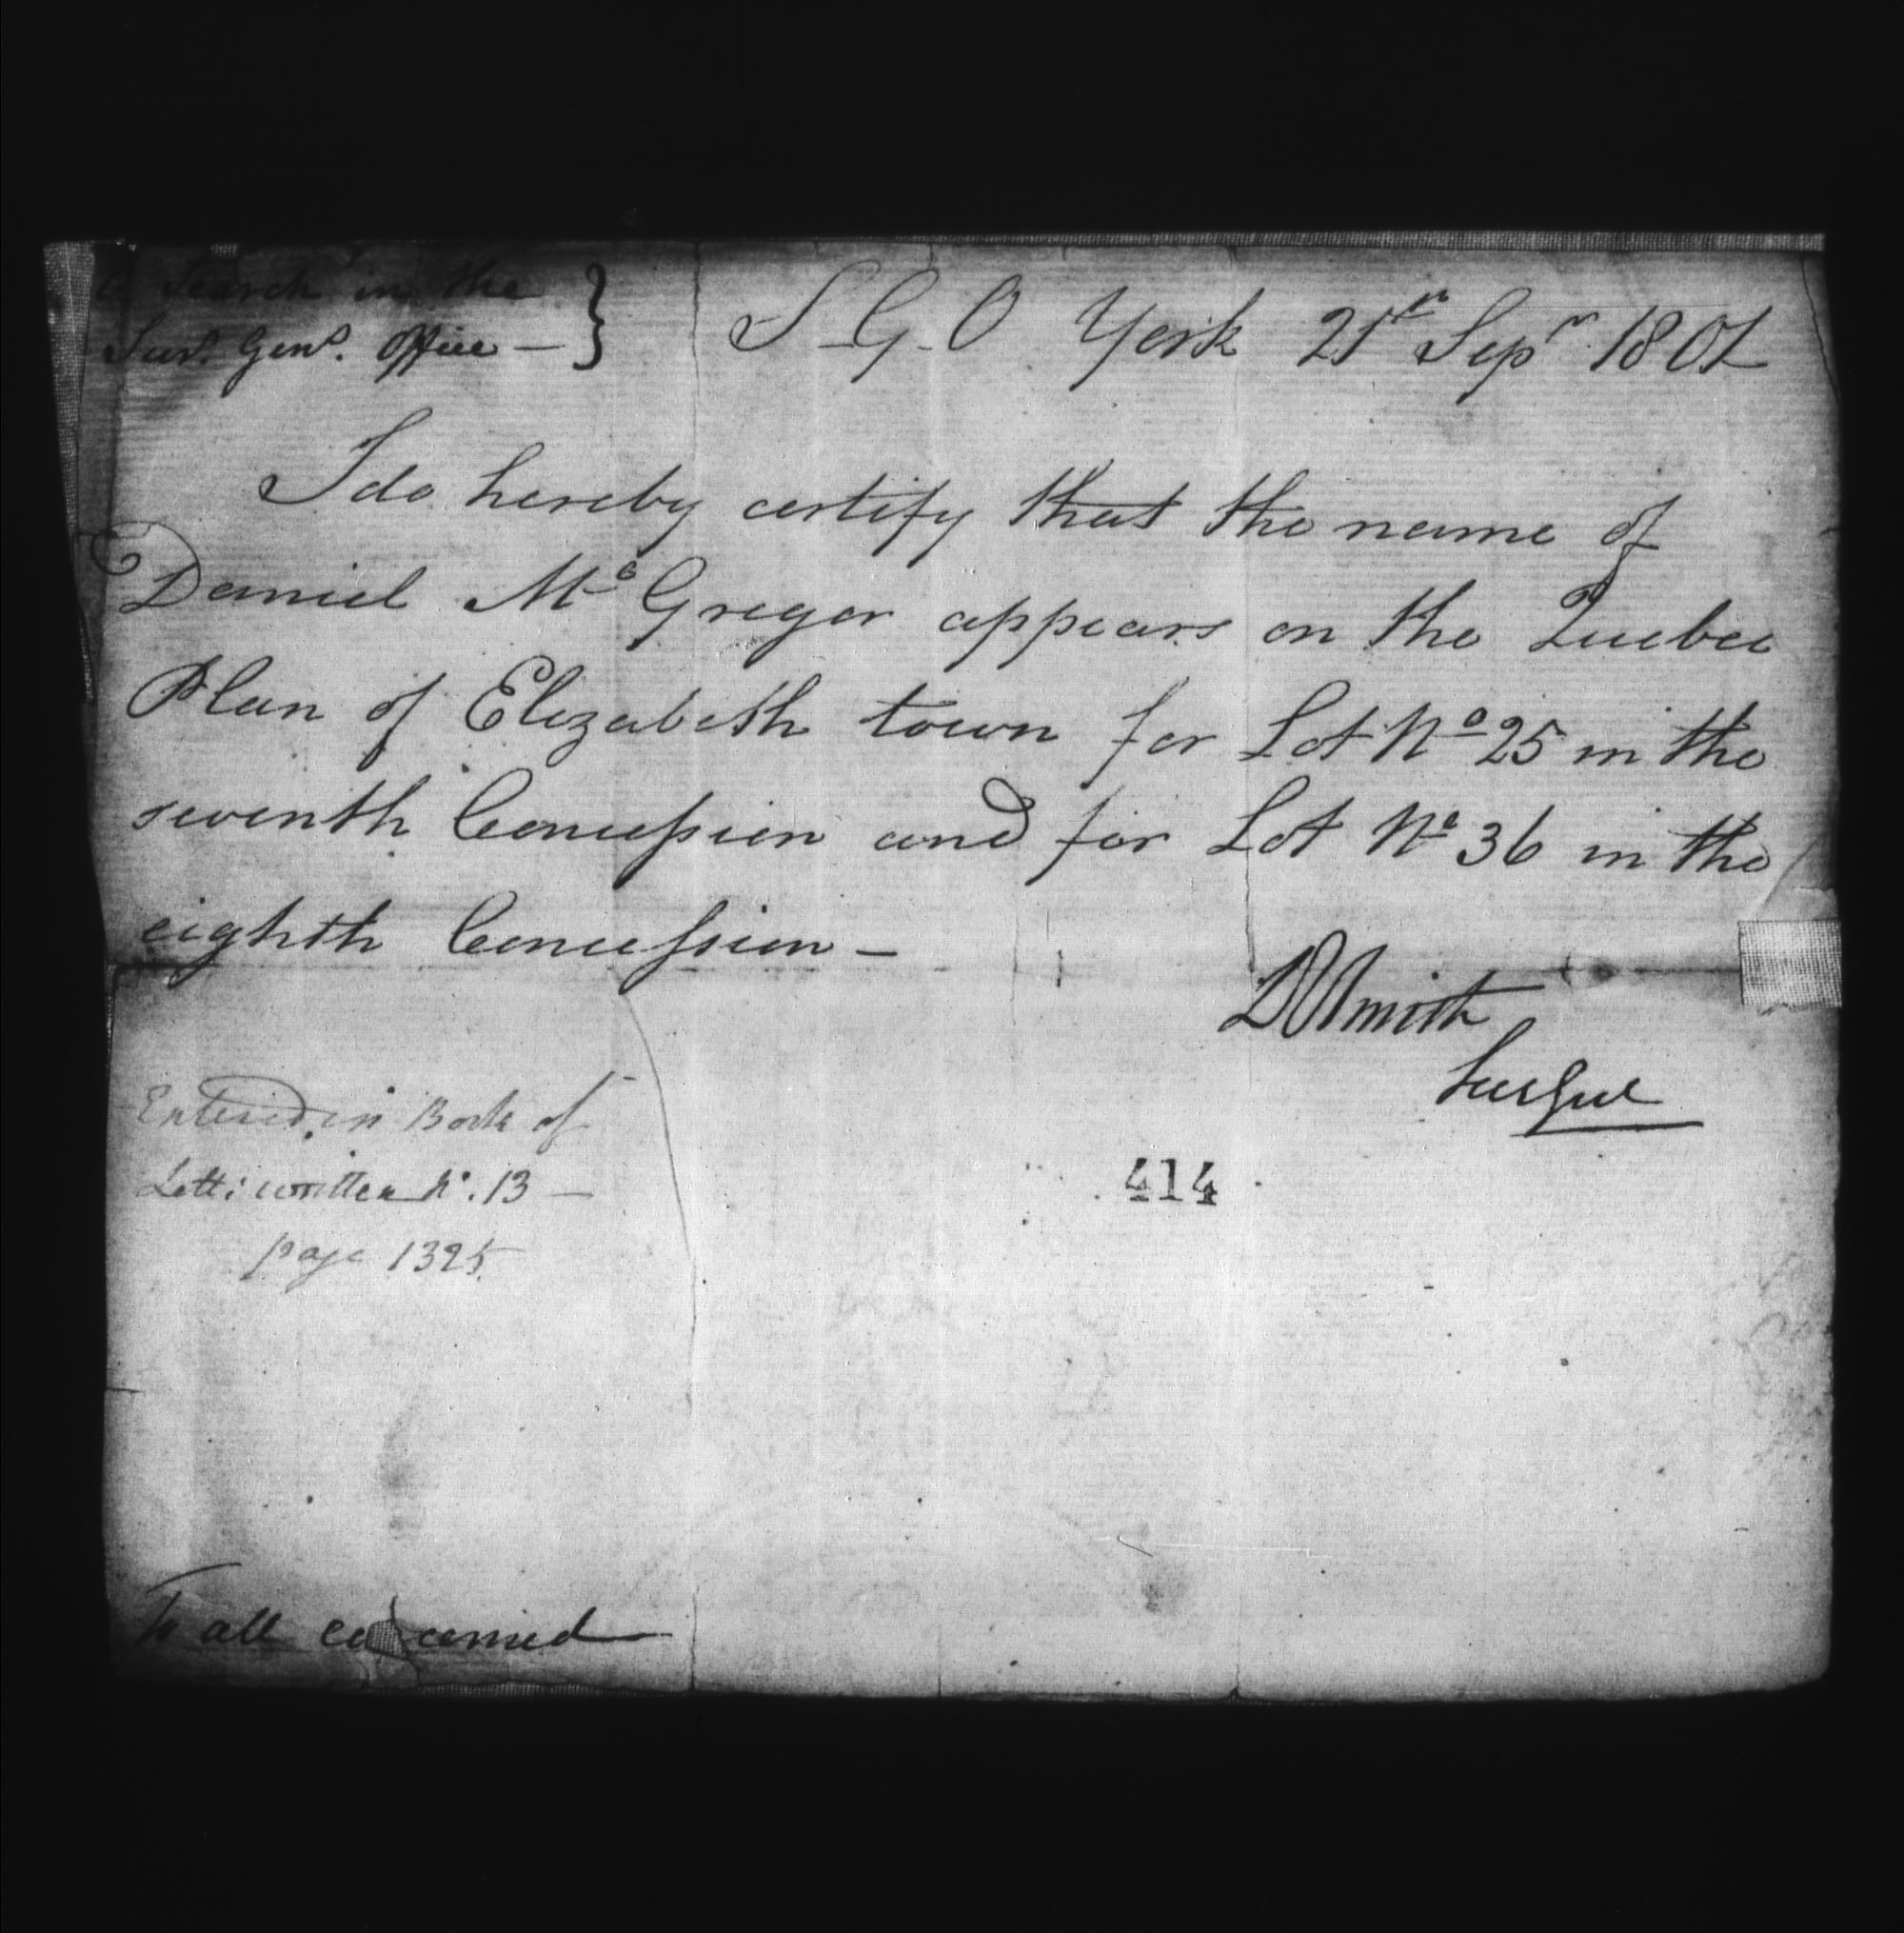 A Search in the
Surv. Genl. Office — }
S. G. O York 21st Sepr 1801
I do hereby certify that the name of
Daniel Mc Gregor appears on the Quebec
Plan of Elizabeth town for Lot No 25 in the
seventh Concession and for Lot No 36 in the
eighth Concession —
DWSmith
Entered in Book of
Lett: written No. 13 —
page 1325
414
To all concerned